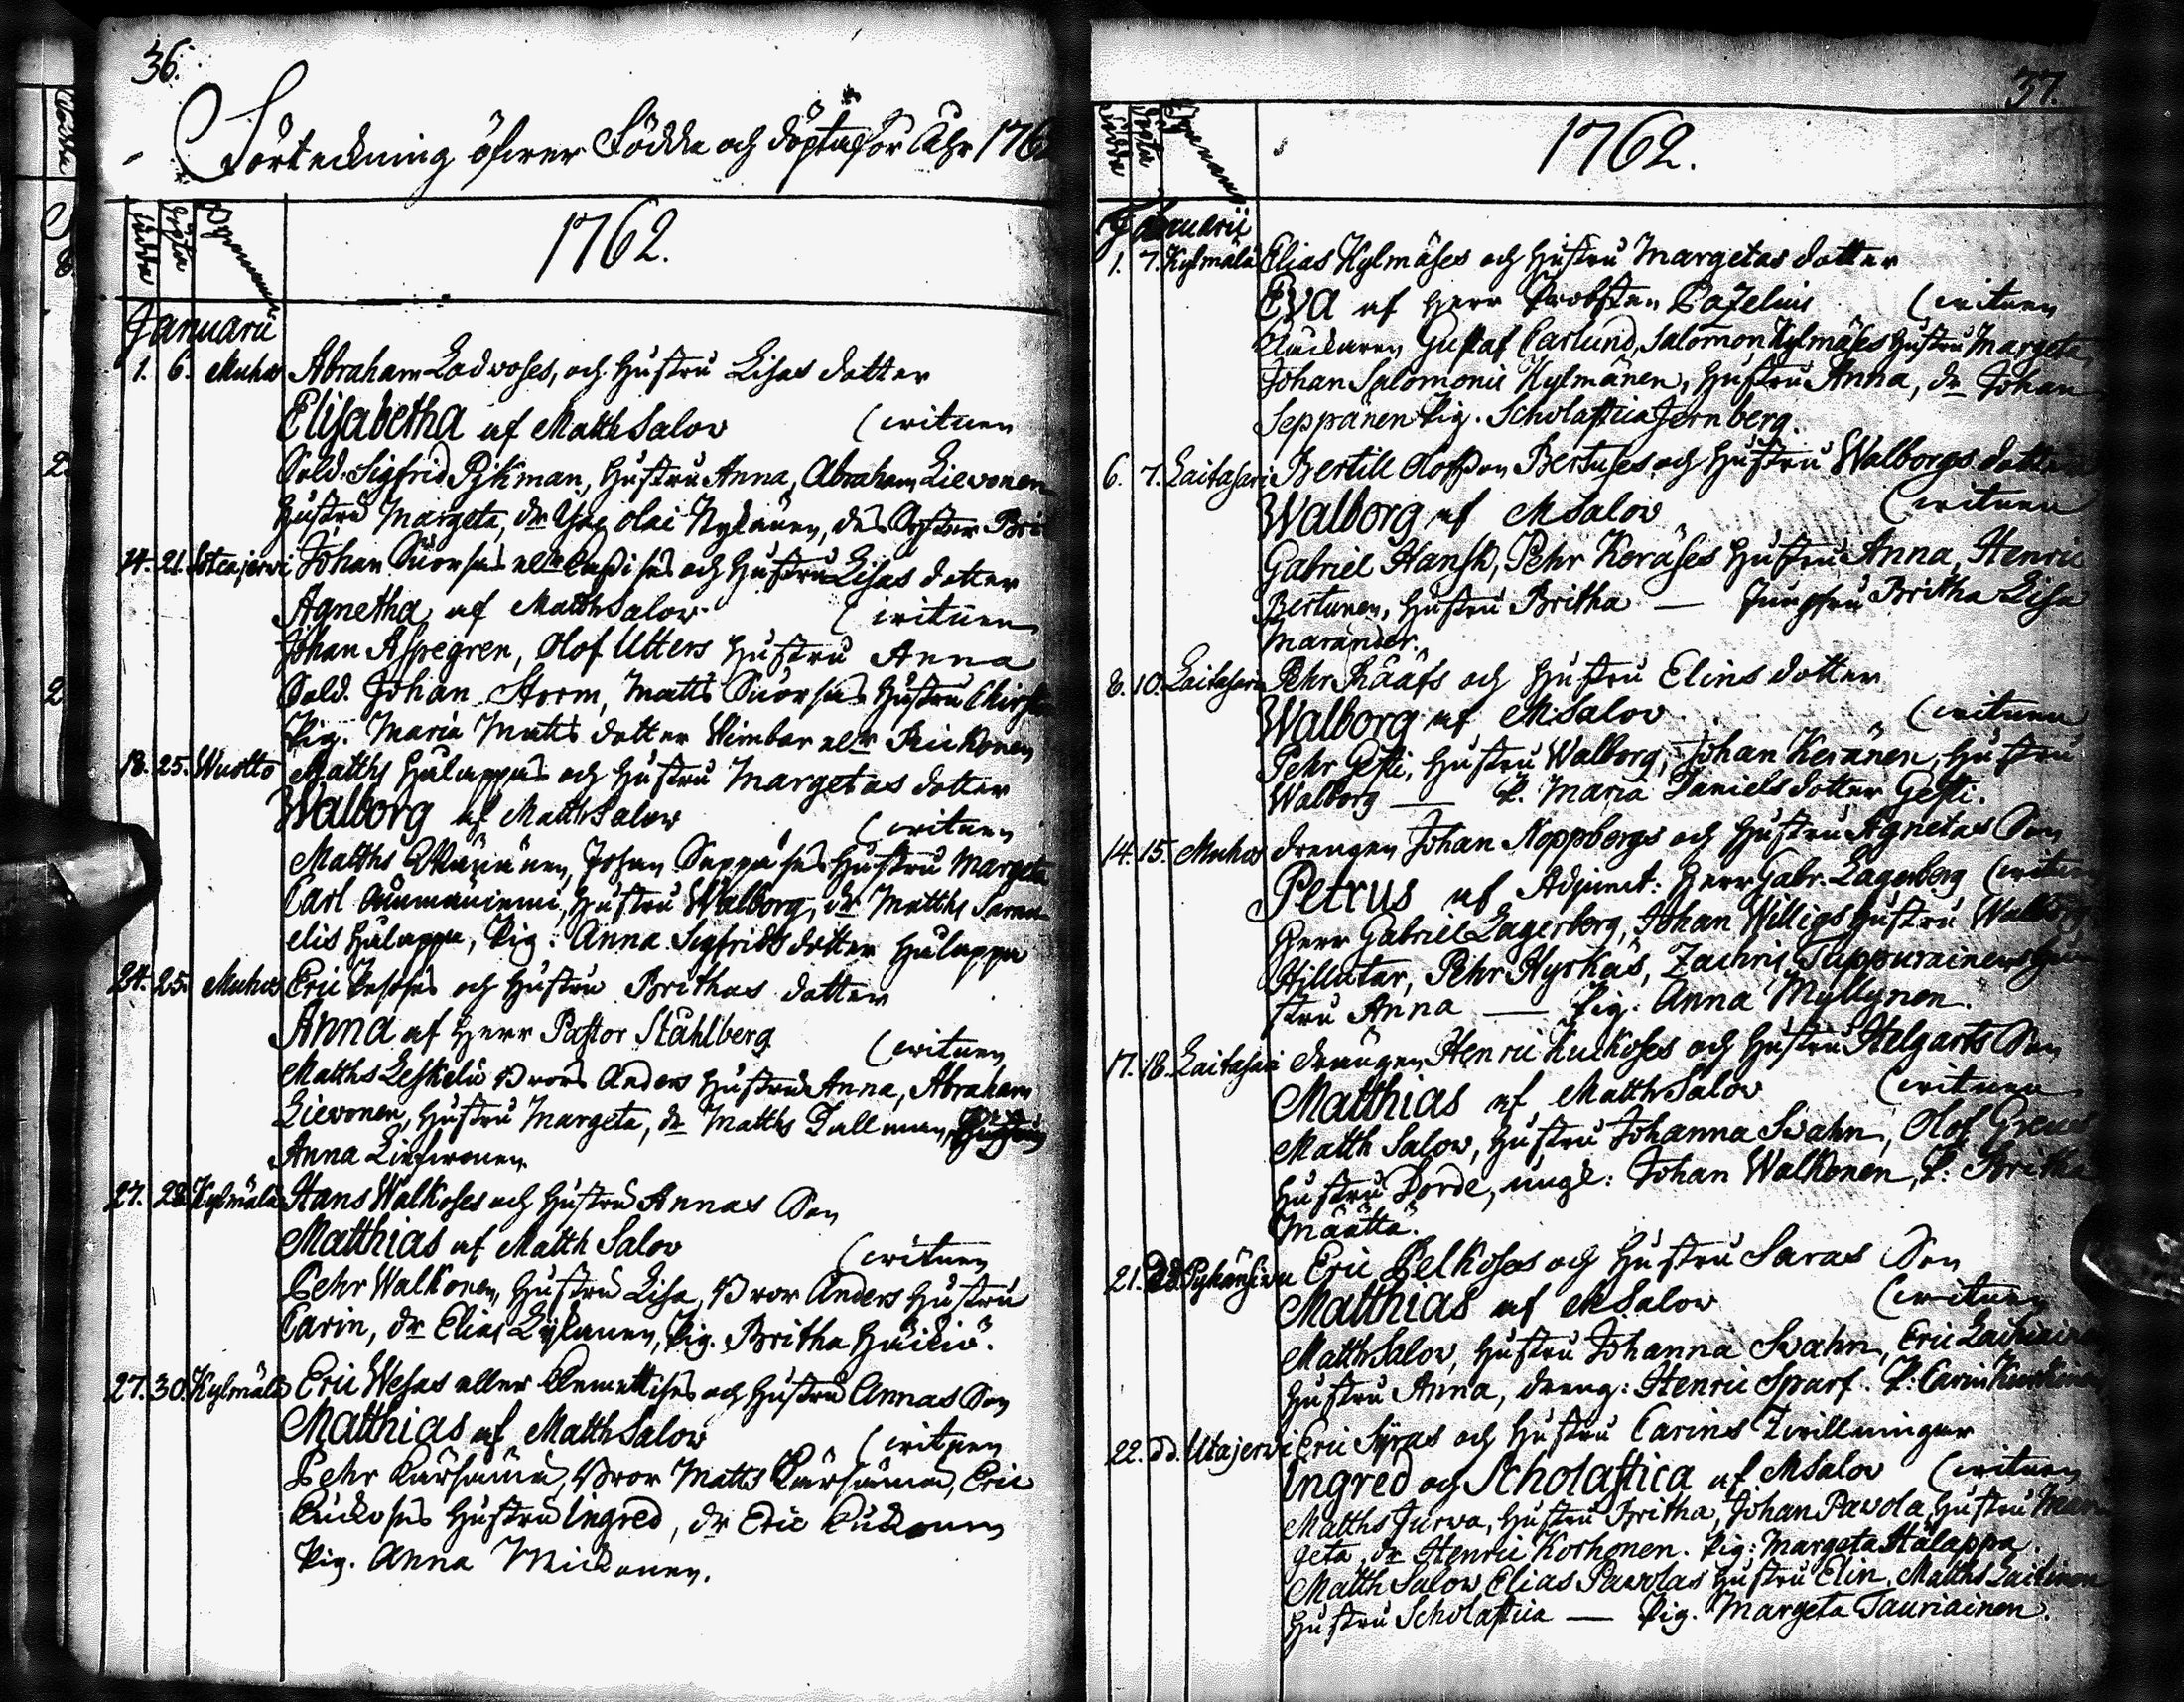 36.
Förteckning öfwer Födde och döpta för Åhr 1762
Födde
Döpta
Byanamn
1762.
Januarii
1. 6. Muhos Abraham Lodwoses, och Hustru Lisas dotter
Elisabetha af Matth Salov (witnen
Sold. Sigfrid Pikman, Hustru Anna, Abraham Lievonen
Hustru Margeta, dr Olai Nykänen, des Syster Bri
14. 21. Johan Suorsas och Hustru Lisas dotter
Agnetha af Matth Salov (witnen
Johan Aspegren, Olof Utters Hustru Anna
Sold. Johan Storm, Matts Suorsas Hustru
Pig. Maria Matts dotter
18. 25. Wuotto Matths Hulappas och Hustru Margetas dotter
Walborg af Matth Salov (witnen
Matths Johan Seppäses Hustru Margeta
Carl Hustru Walborg, dr Matths Samu
elis Hulappa, Pig: Anna Sigfrids dotter Hulappa
24. 25. Muhos Eric och Hustru Brithas dotter
Anna af Herr Pastor Ståhlberg (witnen
Matths Leskelä Bror Anders Hustru Anna, Abraham
Lievonen, Hustru Margeta, dr Matths Tallman,
Anna
27. 28. Kylmälä Hans Walkoses och Hustru Annas Son
Matthias af Matth Salov (witnen
Pehr Walkonen, Hustru Lisa, Bror Anders Hustru
Carin, dr Elias Lykanen, Pig. Britha Häikiö.
27. 30. Kylmälä Eric Wesas eller Clemettises och Hustru Annas Son
Matthias af Matth Salov (witnen
Pehr Kärsämä, Bror Matts Kärsämä, Eric
Kuckoses Hustru Ingred, dr Eric Kuckonen
Pig. Anna Mickonen.
37.
Födde
Döpta
Byanamn
1762.
Januarii
1. 7. Kylmälä Elias Kylmäses och Hustru Margetas dotter
Eva af Herr Probsten Bazelius (witnen
Klockaren Gustaf Carlund, Salomon Kylmäses Hustru Margeta,
Johan Salomonis Kylmänen, Hustru Anna, dr Johan
Seppänen Pig. Scholastica Jernberg.
6. 7. Laitasari Bertill Olofson Bertuses och Hustru Walborgs dotter
Walborg af M Salov (witnen
Gabriel Hansk, Pehr Keräses Hustru Anna, Henric
Bertunen, Hustru Britha — Jungfru Britha Lisa
Marander.
8. 10. Laitasari Pehr Rääfs och Hustru Elins dotter
Walborg af M Salov (witnen
Pehr Gesti, Hustru Walborg, Johan Keränen, Hustru
Walborg — P. Maria Daniels dotter Gesti.
14. 15. Muhos drengen Johan Noppbergs och Hustru Agnetas Son
Petrus af Adjunct: Herr Gabr. Lagerberg (witnen
Herr Gabriel Lagerberg, Johan Willigs Hustru Walborg
Hjllatar, Pehr Hyrkäs, Zachris Tuppurainens Hu
stru Anna — Pig. Anna Myllynen.
17. 18. Laitasari drängen Henric Kuckoses och Hustru Helgarts Son
Matthias af Matth Salov (witnen
Matth Salov, Hustru Johanna Svahn, Olof Greus
Hustru Dorde, ungk: Johan Walkonen, P: Britha
Määttä.
21. Eric Pelkoses och Hustru Saras Son
Matthias af M Salov (witnen
Matth Salov, Hustru Johanna Svahn, Eric
Hustru Anna, dreng: Henric Sparf. P: Carin
22. dd. Utajervi Eric Syras och Hustru Carins Twillingar
Ingred och Scholastica af M Salov (witnen
Matths Jurva, Hustru Britha, Johan Pavola, Hustru Mar
geta, dr Henric Korhonen. Pig: Margeta Hulappa.
Matth Salov Elias Pavolas Hustru Elin, Matths Laitinen
Hustru Scholastica — Pig. Margeta Tauriainen.